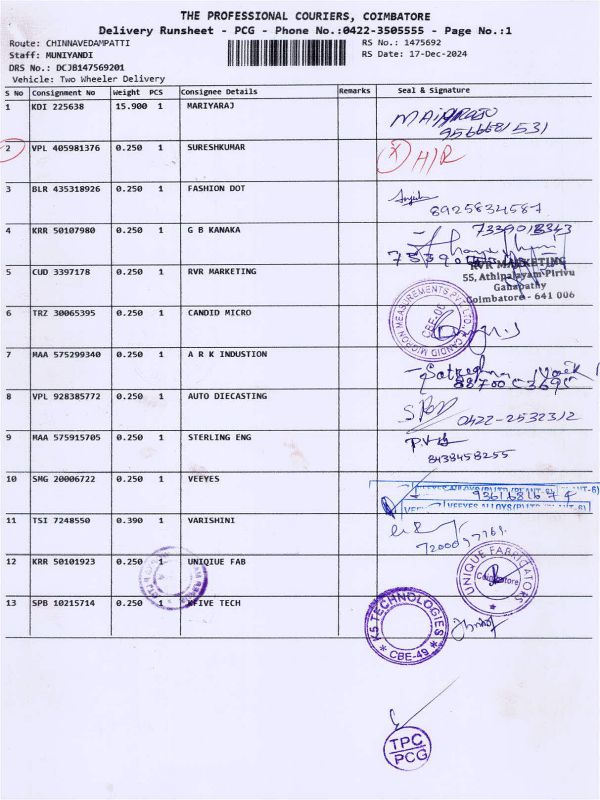 THE PROFESSIONAL COURIERS, COIMBATORE
Delivery Runsheet - PCG - Phone No.:0422-3505555 - Page No.:1
Route: CHINNAVEDAMPATTI RS No.: 1475692
Staff: MUNIYANDI RS Date: 17-Dec-2024
DRS No.: DCJB147569201
Vehicle: Two Wheeler Delivery
S No Consignment No Weight PCS Consignee Details Remarks Seal & Signature
1 KDI 225638 15.900 1 MARIYARAJ
9566681531
2 VPL 405981376 0.250 1 SURESHKUMAR H/R
3 BLR 435318926 0.250 1 FASHION DOT
8925834587
4 KRR 50107980 0.250 1 G B KANAKA
5 CUD 3397178 0.250 1 RVR MARKETING
RVR MARKETING
55, Athipalayam Pirivu
Ganapathy
Coimbatore - 641 006
6 TRZ 30065395 0.250 1 CANDID MICRO
7 MAA 575299340 0.250 1 A R K INDUSTION
8 VPL 928385772 0.250 1 AUTO DIECASTING
0422-2532312
9 MAA 575915705 0.250 1 STERLING ENG
8438458255
10 SMG 20006722 0.250 1 VEEYES
11 TSI 7248550 0.390 1 VARISHINI
12 KRR 50101923 0.250 1 UNIQIUE FAB
UNIQUE FABRICATORS
Coimbatore
13 SPB 10215714 0.250 1 KFIVE TECH
K5 TECHNOLOGIES
CBE-49
TPC
PCG